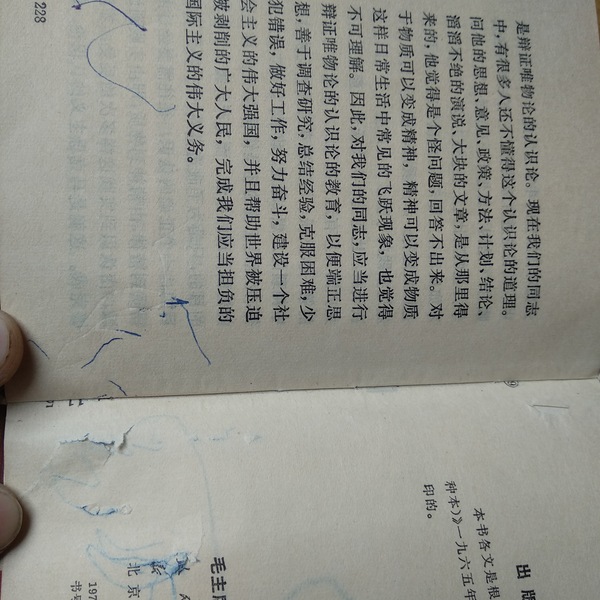 是辩证唯物论的认识论。现在我们的同志
中，有很多人还不懂得这个认识论的道理。
问他的思想、意见、政策、方法、计划、结论、
滔滔不绝的演说、大块的文章，是从那里得
来的，他觉得是个怪问题，回答不出来。对
于物质可以变成精神，精神可以变成物质
这样日常生活中常见的飞跃现象，也觉得
不可理解。因此，对我们的同志，应当进行
辩证唯物论的认识论的教育，以便端正思
想，善于调查研究，总结经验，克服困难，少
犯错误，做好工作，努力奋斗，建设一个社
会主义的伟大强国，并且帮助世界被压迫
被剥削的广大人民，完成我们应当担负的
国际主义的伟大义务。
228
出版
本书各文是根
种本）》一九六五年
印的。
毛主席
北京
197
书号